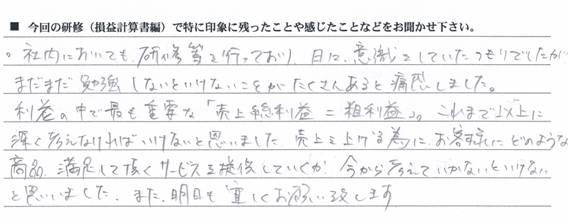 ■ 今回の研修（損益計算書編）で特に印象に残ったことや感じたことなどをお聞かせ下さい。
。社内においても、研修等を行っており、日々、意識をしていたつもりでしたが
まだまだ勉強しないといけないことがたくさんあると痛感しました。
利益の中で最も重要な「売上総利益＝粗利益」。これまで以上に
深く考えなければいけないと思いました。売上を上げる為に、お客様に、どのような
商品、満足して頂くサービスを提供していくか、今から考えていかないといけない
と思いました。また、明日も宜しくお願い致します